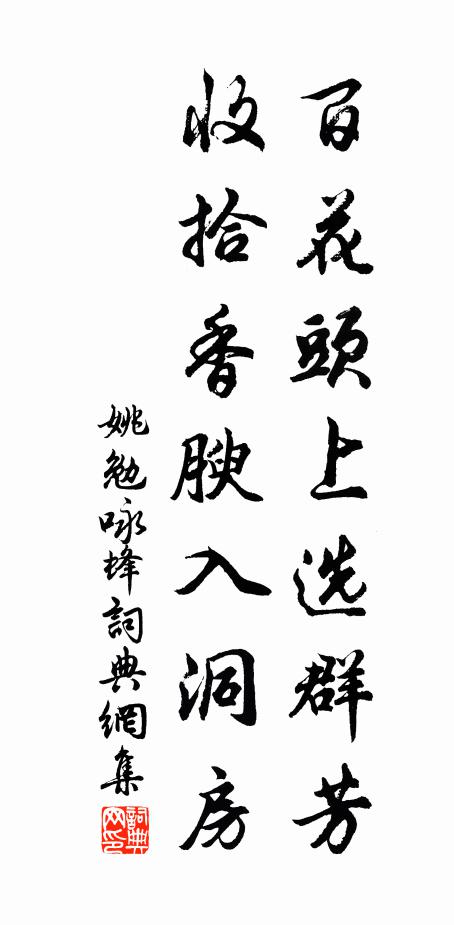 百花頭上选群芳
收拾香腴入洞房
姚勉咏蜂詞典網集
詞典網印